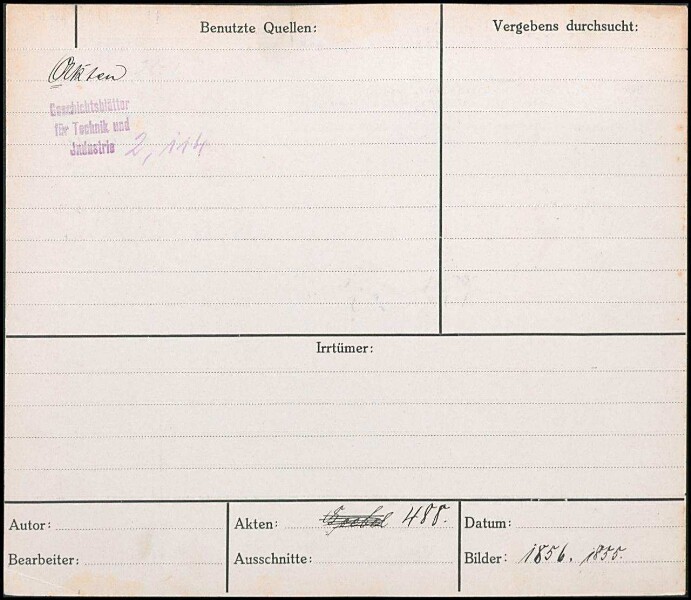 Benutzte Quellen:
Vergebens durchsucht:
Akten
Geschichtsblätter
für Technik und
Industrie 2, 114
Irrtümer:
Autor:
Akten: 488.
Datum:
Bearbeiter:
Ausschnitte:
Bilder: 1856. 1855.